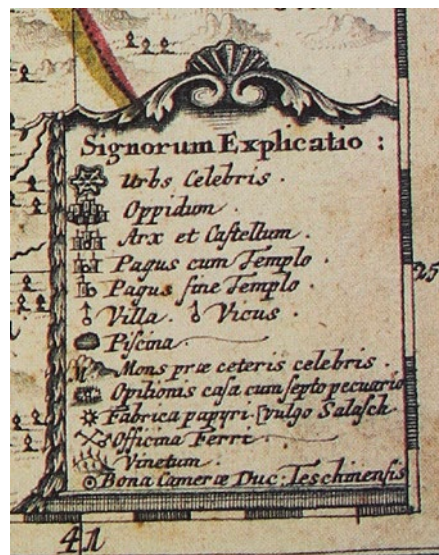 Signorum Explicatio :
Urbs Celebris .
Oppidum .
Arx et Castellum .
Pagus cum Templo .
Pagus sine Templo .
Villa . Vicus .
Piscina .
Mons præ ceteris celebris .
Opilionis casa cum septo pecuario
Fabrica papyri . [vulgo Salasch
Officina Ferri
Vinetum .
Bona Cameræ Duc: Teschinensis
25
41